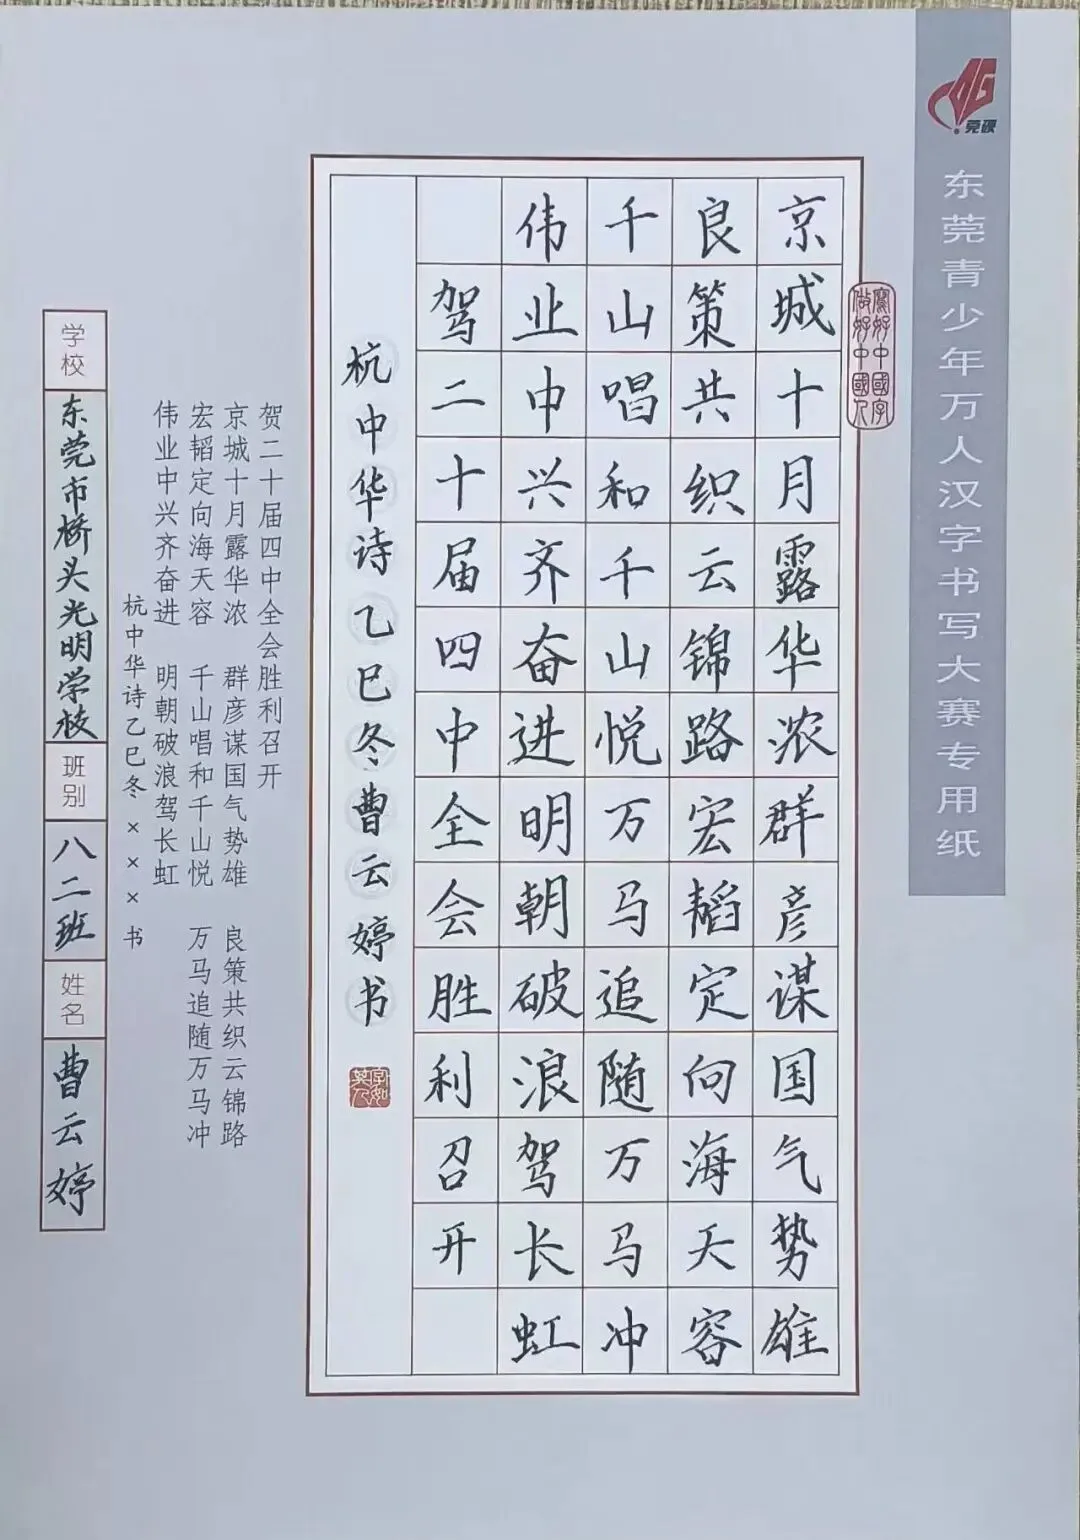 DG
莞硬
东莞青少年万人汉字书写大赛专用纸
寫好中國字
做好中國人
京城十月露华浓群彦谋国气势雄
良策共织云锦路宏韬定向海天容
千山唱和千山悦万马追随万马冲
伟业中兴齐奋进明朝破浪驾长虹
驾二十届四中全会胜利召开
杭中华诗乙巳冬曹云婷书
字如其人
贺二十届四中全会胜利召开
京城十月露华浓 群彦谋国气势雄 良策共织云锦路
宏韬定向海天容 千山唱和千山悦 万马追随万马冲
伟业中兴齐奋进 明朝破浪驾长虹
杭中华诗乙巳冬×××书
学校
东莞市桥头光明学校
班别
八二班
姓名
曹云婷